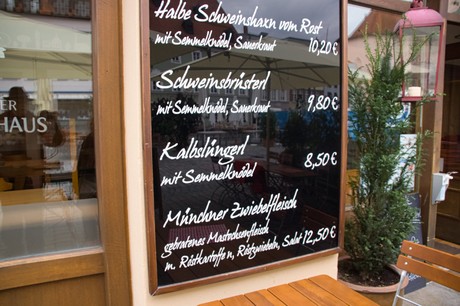 Halbe Schweinshaxn vom Rost
mit Semmelknödel, Sauerkraut 10,20 €
Schweinsbrüsterl
mit Semmelknödel, Sauerkraut 9,80 €
Kalbslüngerl
mit Semmelknödel 8,50 €
Münchner Zwiebelfleisch
gebratenes Mastochsenfleisch
m. Röstkartoffeln, Röstzwiebeln, Salat 12,50 €
HAUS